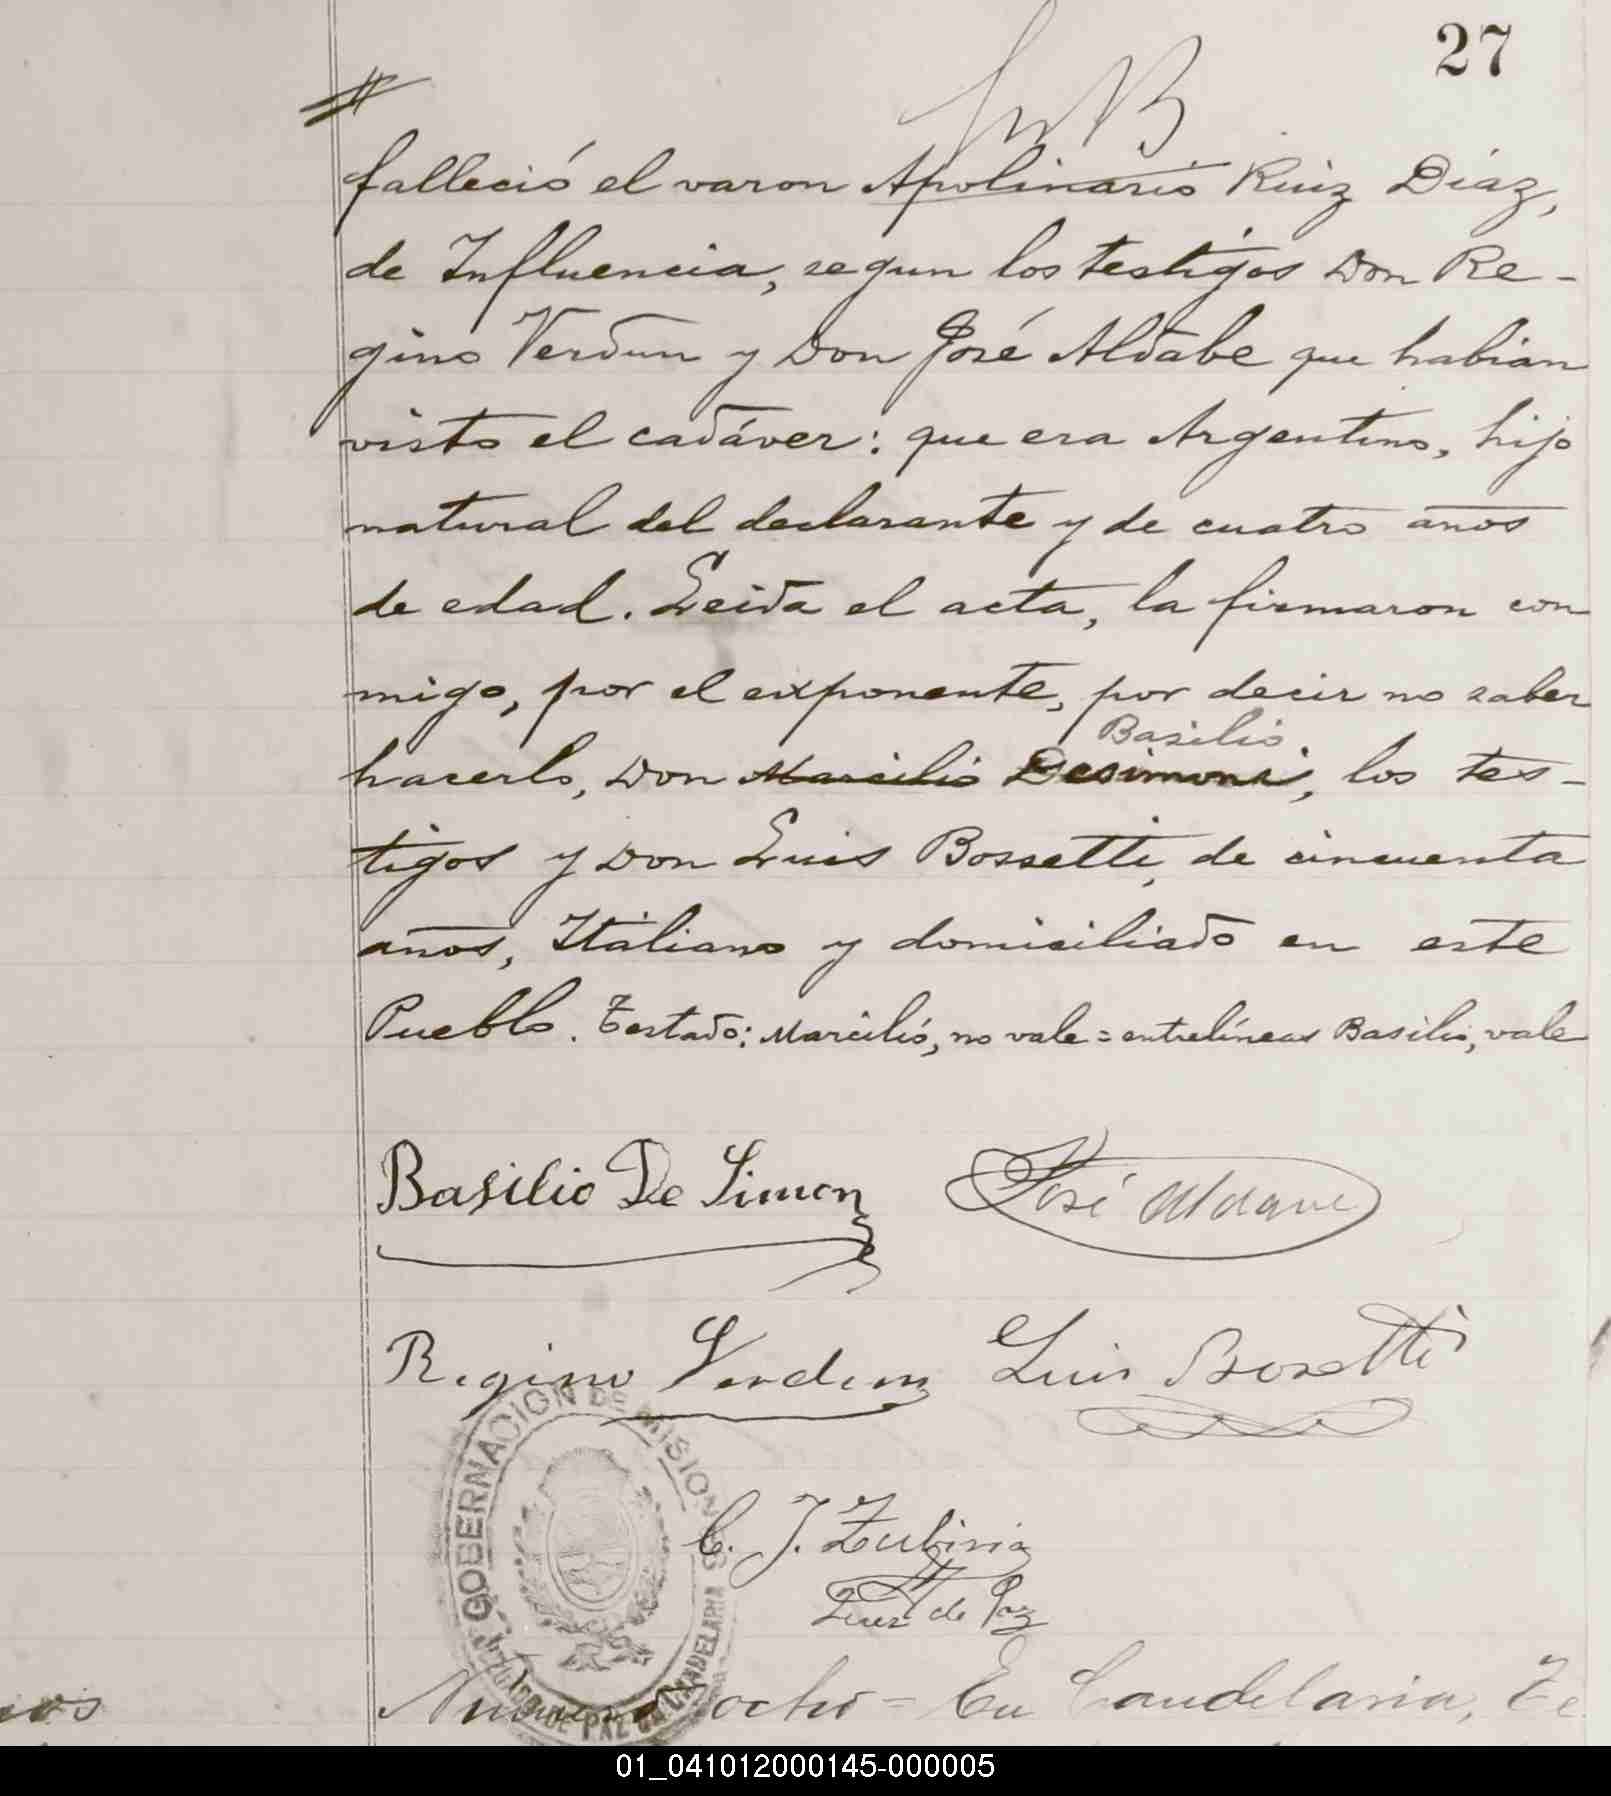 27
falleció el varon Apolinario Ruiz Díaz,
de Influencia, segun los testigos Don Re-
gino Verdun y Don José Aldabe que habian
visto el cadáver: que era Argentino, hijo
natural del declarante y de cuatro años
de edad. Leida el acta, la firmaron con
migo, por el exponente, por decir no saber
Basilio
hacerlo, Don Marcilio Desimoni, los tes-
tigos y Don Luis Bossetti, de cincuenta
años, Italiano y domiciliado en este
Pueblo. Testado: Marcilio, no vale = entrelíneas Basilio, vale
Basilio De Simon
José Aldave
Regino Verdun
Luis Bosetti
GOBERNACION DE MISIONES
JUZGADO DE PAZ CANDELARIA
C. J. Zubiria
Juez de Paz
Numero ocho = En Candelaria, Te
ios
01_041012000145-000005